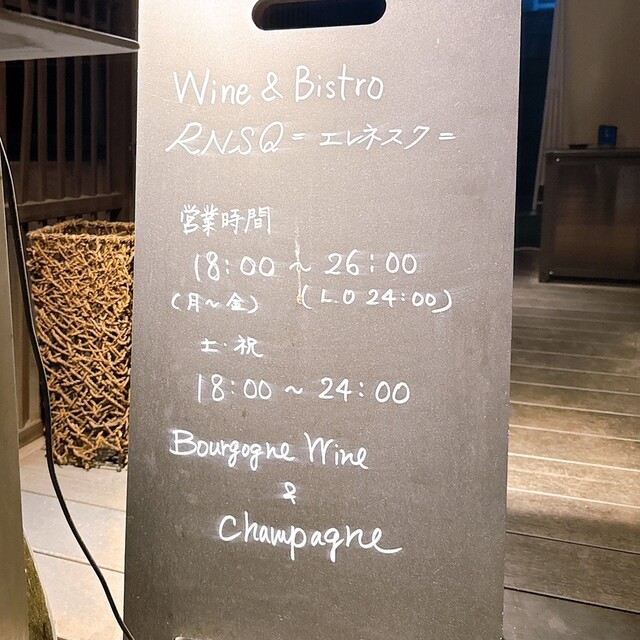 Wine & Bistro
RNSQ = エレネスク =
営業時間
18:00 ~ 26:00
(月~金) (L.O 24:00)
土・祝
18:00 ~ 24:00
Bourgogne Wine
&
Champagne